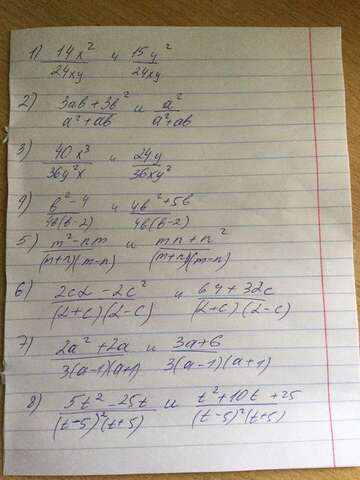 1) 14x²/24xy и 15y²/24xy
2) 3ab+3b²/a²+ab и a²/a²+ab
3) 40x³/36y²x и 24y/36xy²
4) b²-4/4b(b-2) и 4b²+5b/4b(b-2)
5) m²-nm/(m+n)(m-n) и mn+n²/(m+n)(m-n)
6) 2cd-2c²/(d+c)(d-c) и 64+32c/(d+c)(d-c)
7) 2a²+2a/3(a-1)(a+1) и 3a+6/3(a-1)(a+1)
8) 5t²-25t/(t-5)²(t+5) и t²+10t+25/(t-5)²(t+5)